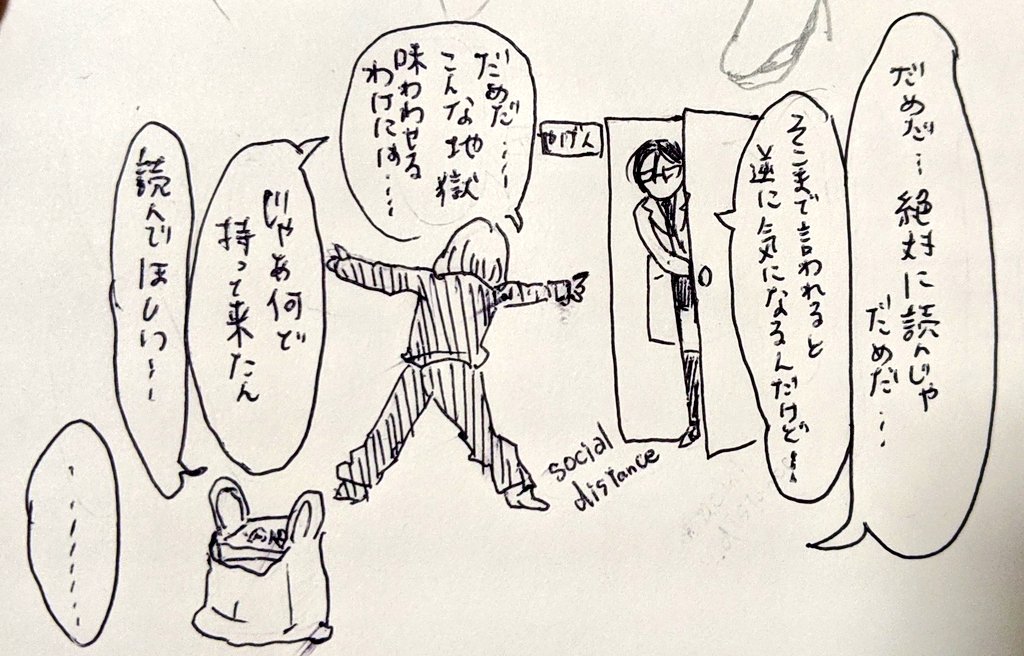 だめだ…絶対に読んじゃ
だめだ…
そこまで言われると
逆に気になるんだけど…
やげん
だめだ……
こんな地獄
味わわせる
わけには…
social
distance
じゃあ何で
持って来たん
読んでほしい…
………